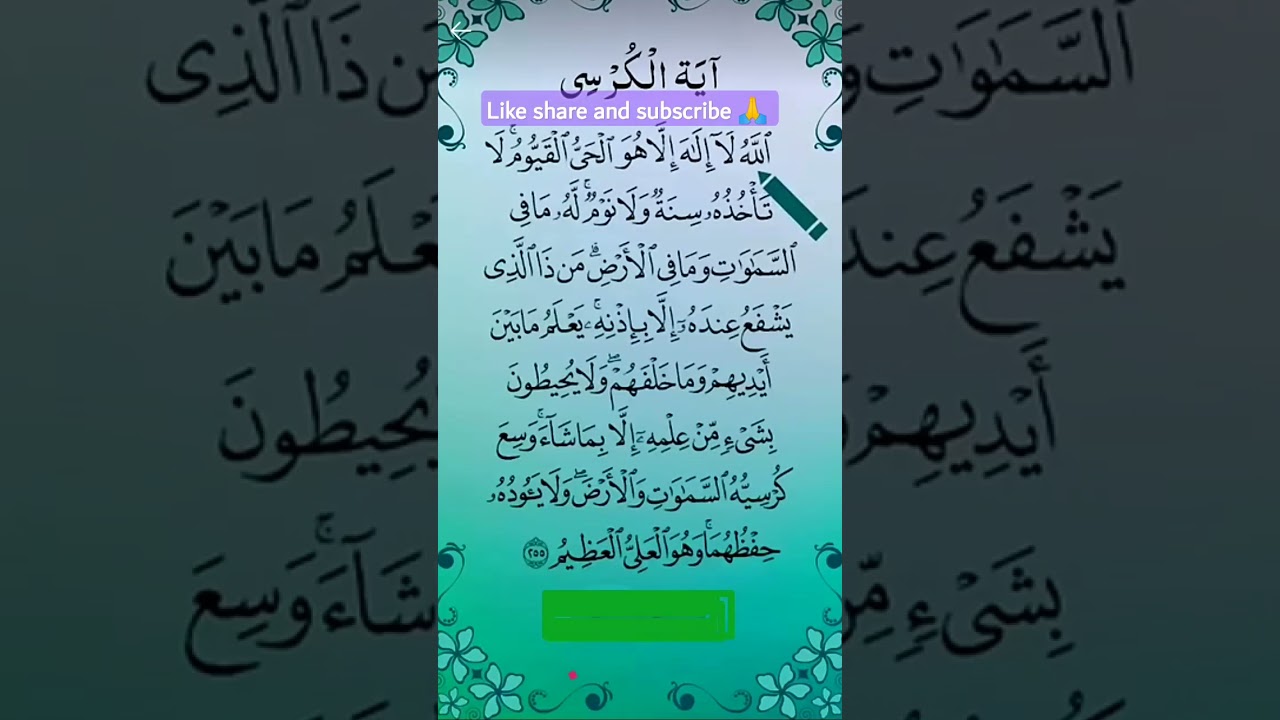 آيَة الْكُرْسِى
Like share and subscribe 🙏
ٱللَّهُ لَآ إِلَٰهَ إِلَّا هُوَ ٱلْحَىُّ ٱلْقَيُّومُ ۚ لَا
تَأْخُذُهُۥ سِنَةٌ وَلَا نَوْمٌ ۚ لَّهُۥ مَا فِى
ٱلسَّمَٰوَٰتِ وَمَا فِى ٱلْأَرْضِ ۗ مَن ذَا ٱلَّذِى
يَشْفَعُ عِندَهُۥٓ إِلَّا بِإِذْنِهِۦ ۚ يَعْلَمُ مَا بَيْنَ
أَيْدِيهِمْ وَمَا خَلْفَهُمْ ۖ وَلَا يُحِيطُونَ
بِشَىْءٍ مِّنْ عِلْمِهِۦٓ إِلَّا بِمَا شَآءَ ۚ وَسِعَ
كُرْسِيُّهُ ٱلسَّمَٰوَٰتِ وَٱلْأَرْضَ ۖ وَلَا يَـُٔودُهُۥ
حِفْظُهُمَا ۚ وَهُوَ ٱلْعَلِىُّ ٱلْعَظِيمُ ٢٥٥